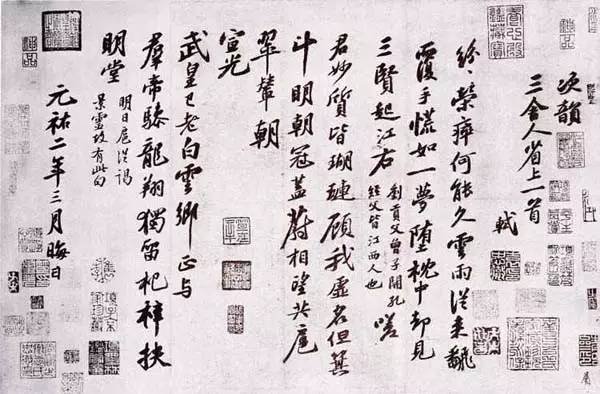 次韻
三舍人省上一首
軾
紛〻榮瘁何能久雲雨從来翻
覆手慌如一夢堕枕中却見
三賢起江右
劉貢父曾子開孔
經父皆江西人也
嗟
君妙質皆瑚璉顧我虚名但箕
斗明朝冠蓋蔚相望共扈
翠輦朝
宣光
武皇已老白雲鄉正与
羣帝驂龍翔獨留杞梓扶
明堂
明日扈從謁
景靈故有此句
元祐二年三月晦日